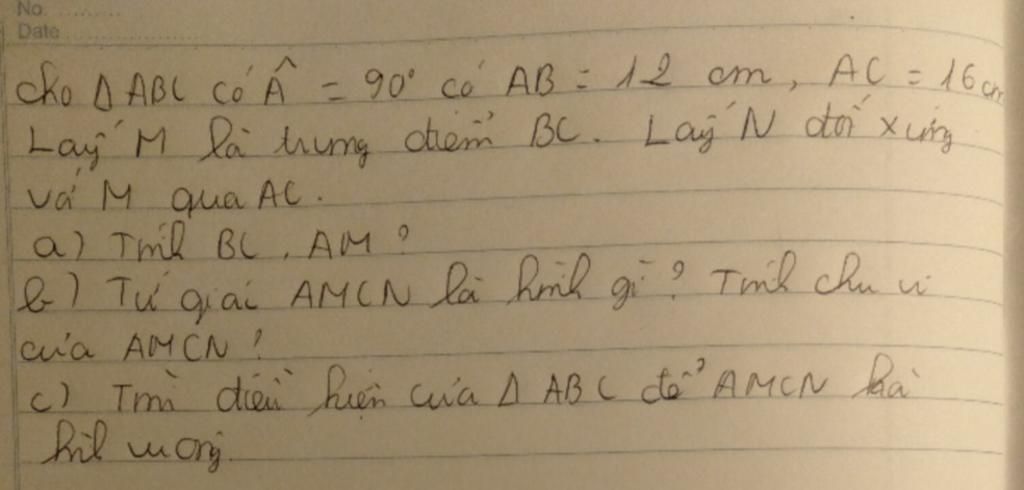 No. ............
Date ......................
Cho Δ ABC có Â = 90° có AB = 12 cm, AC = 16 cm
Lấy M là trung điểm BC. Lấy N đối xứng
với M qua AC.
a) Tính BC, AM ?
b) Tứ giác AMCN là hình gì ? Tính chu vi
của AMCN ?
c) Tìm điều kiện của Δ ABC để AMCN là
hình vuông.